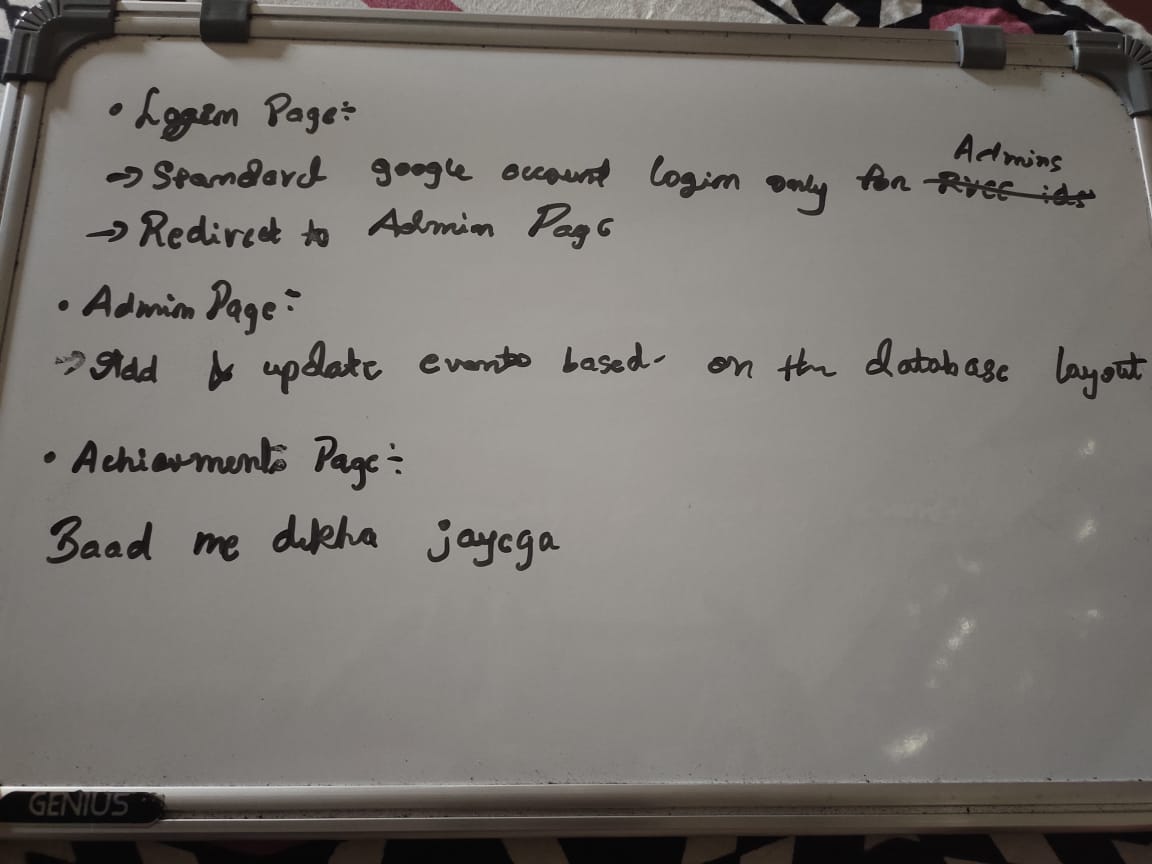 • Login Page:-
Admins
→ Standard google account login only for
→ Redirect to Admin Page
• Admin Page:-
→ Add & update events based on the database layout
• Achievments Page:-
Baad me dekha jayega
GENIUS